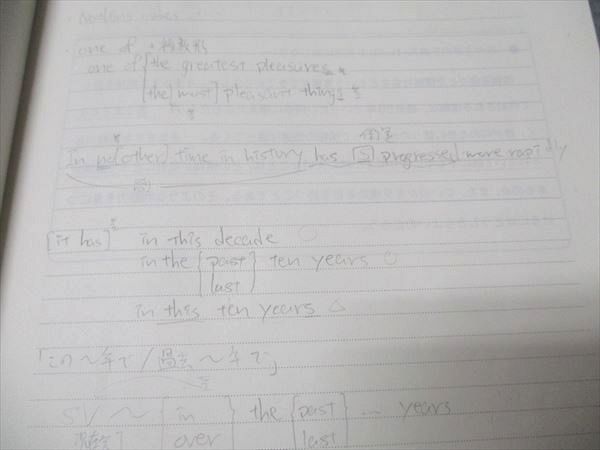 ・one of + 複数形
one of { the greatest pleasures
[the] [most] pleasant things
倒置
In no [other] time in history has [S] progressed more rapidly
[it has] in this decade ○
in the { past } ten years ○
last
in this ten years △
「この～年で / 過去～年で」
SV ～ { in } the { past } … years
over last